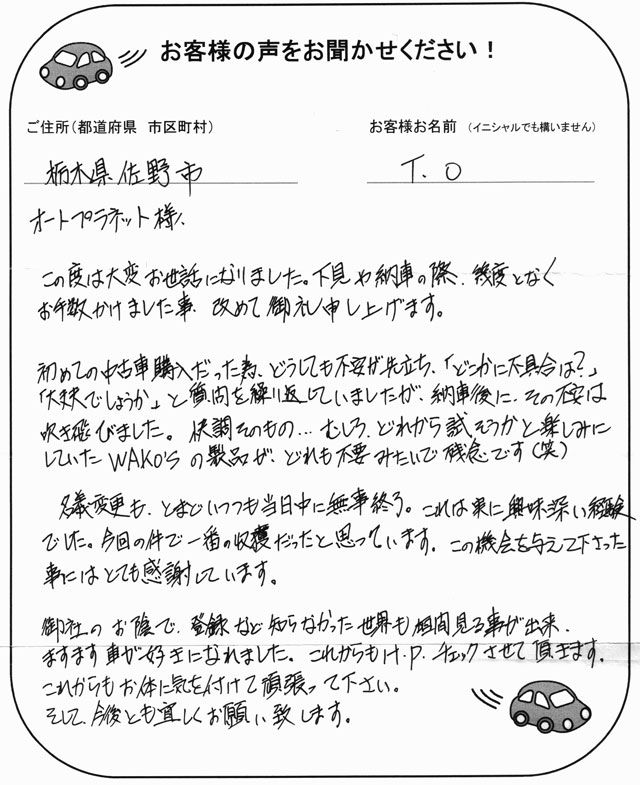 お客様の声をお聞かせください！
ご住所（都道府県　市区町村）
お客様お名前　（イニシャルでも構いません）
栃木県佐野市
T. O
オートプラネット様、
この度は大変お世話になりました。下見や納車の際、幾度となく
お手数かけました事、改めて御礼申し上げます。
初めての中古車購入だった為、どうしても不安が先立ち、「どこかに不具合は？」
「大丈夫でしょうか」と質問を繰り返していましたが、納車後に、その不安は
吹き飛びました。快調そのもの…むしろ、どれから試そうかと楽しみに
していたWAKO'Sの製品が、どれも不要みたいで残念です（笑）
名義変更も、とまどいつつも当日中に無事終了。これは実に興味深い経験
でした。今回の件で一番の収穫だったと思っています。この機会を与えて下さった
事にはとても感謝しています。
御社のお陰で、登録など知らなかった世界も垣間見る事が出来、
ますます車が好きになれました。これからもH.P.チェックさせて頂きます。
これからもお体に気を付けて頑張って下さい。
そして、今後とも宜しくお願い致します。